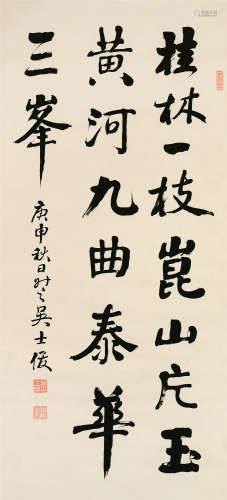 桂林一枝崑山片玉
黄河九曲泰華
三峯
庚申秋日
吳士俊